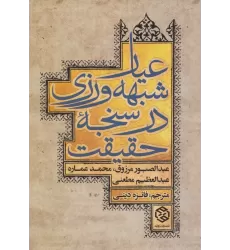 عیار
شبهه ورزی
در سنجهٔ
حقیقت
عبدالصبور مرزوق، محمد عماره
عبدالعظیم مطعنی
مترجم: فائزه دینی